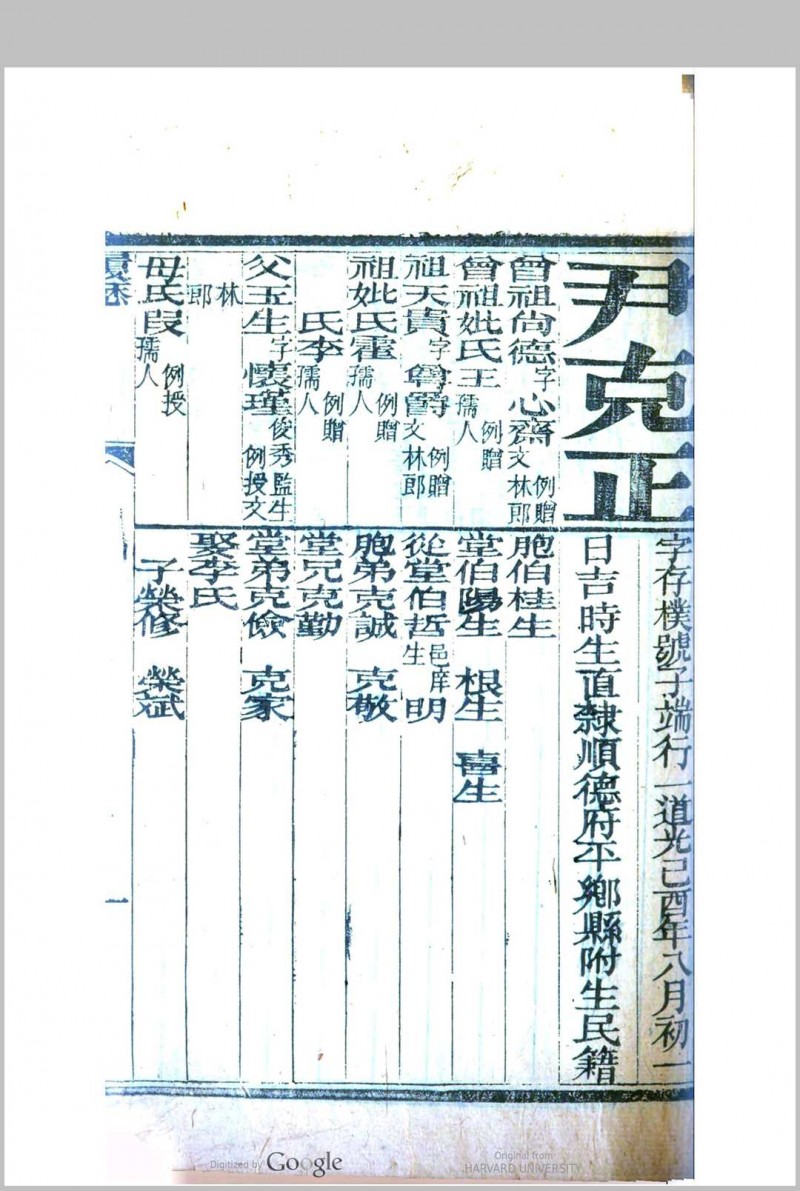 尹克正
字存樸號子端行一道光己酉年八月初一
日吉時生直隸順德府平鄉縣附生民籍
曾祖尙德字心齋例贈文林郎
曾祖妣氏王例贈孺人
祖天貴字尊爵例贈文林郎
祖妣氏霍例贈孺人
氏李例贈孺人
父玉生字懷瑾俊秀監生例授文
林郎
母氏段例授孺人
胞伯桂生
堂伯陽生 根生 喜生
從堂伯哲邑庠生 明
胞弟克誠 克敬
堂兄克勤
堂弟克儉 克家
娶李氏
子榮修 榮斌
一
Digitized by Google
Original from
HARVARD UNIVERSITY